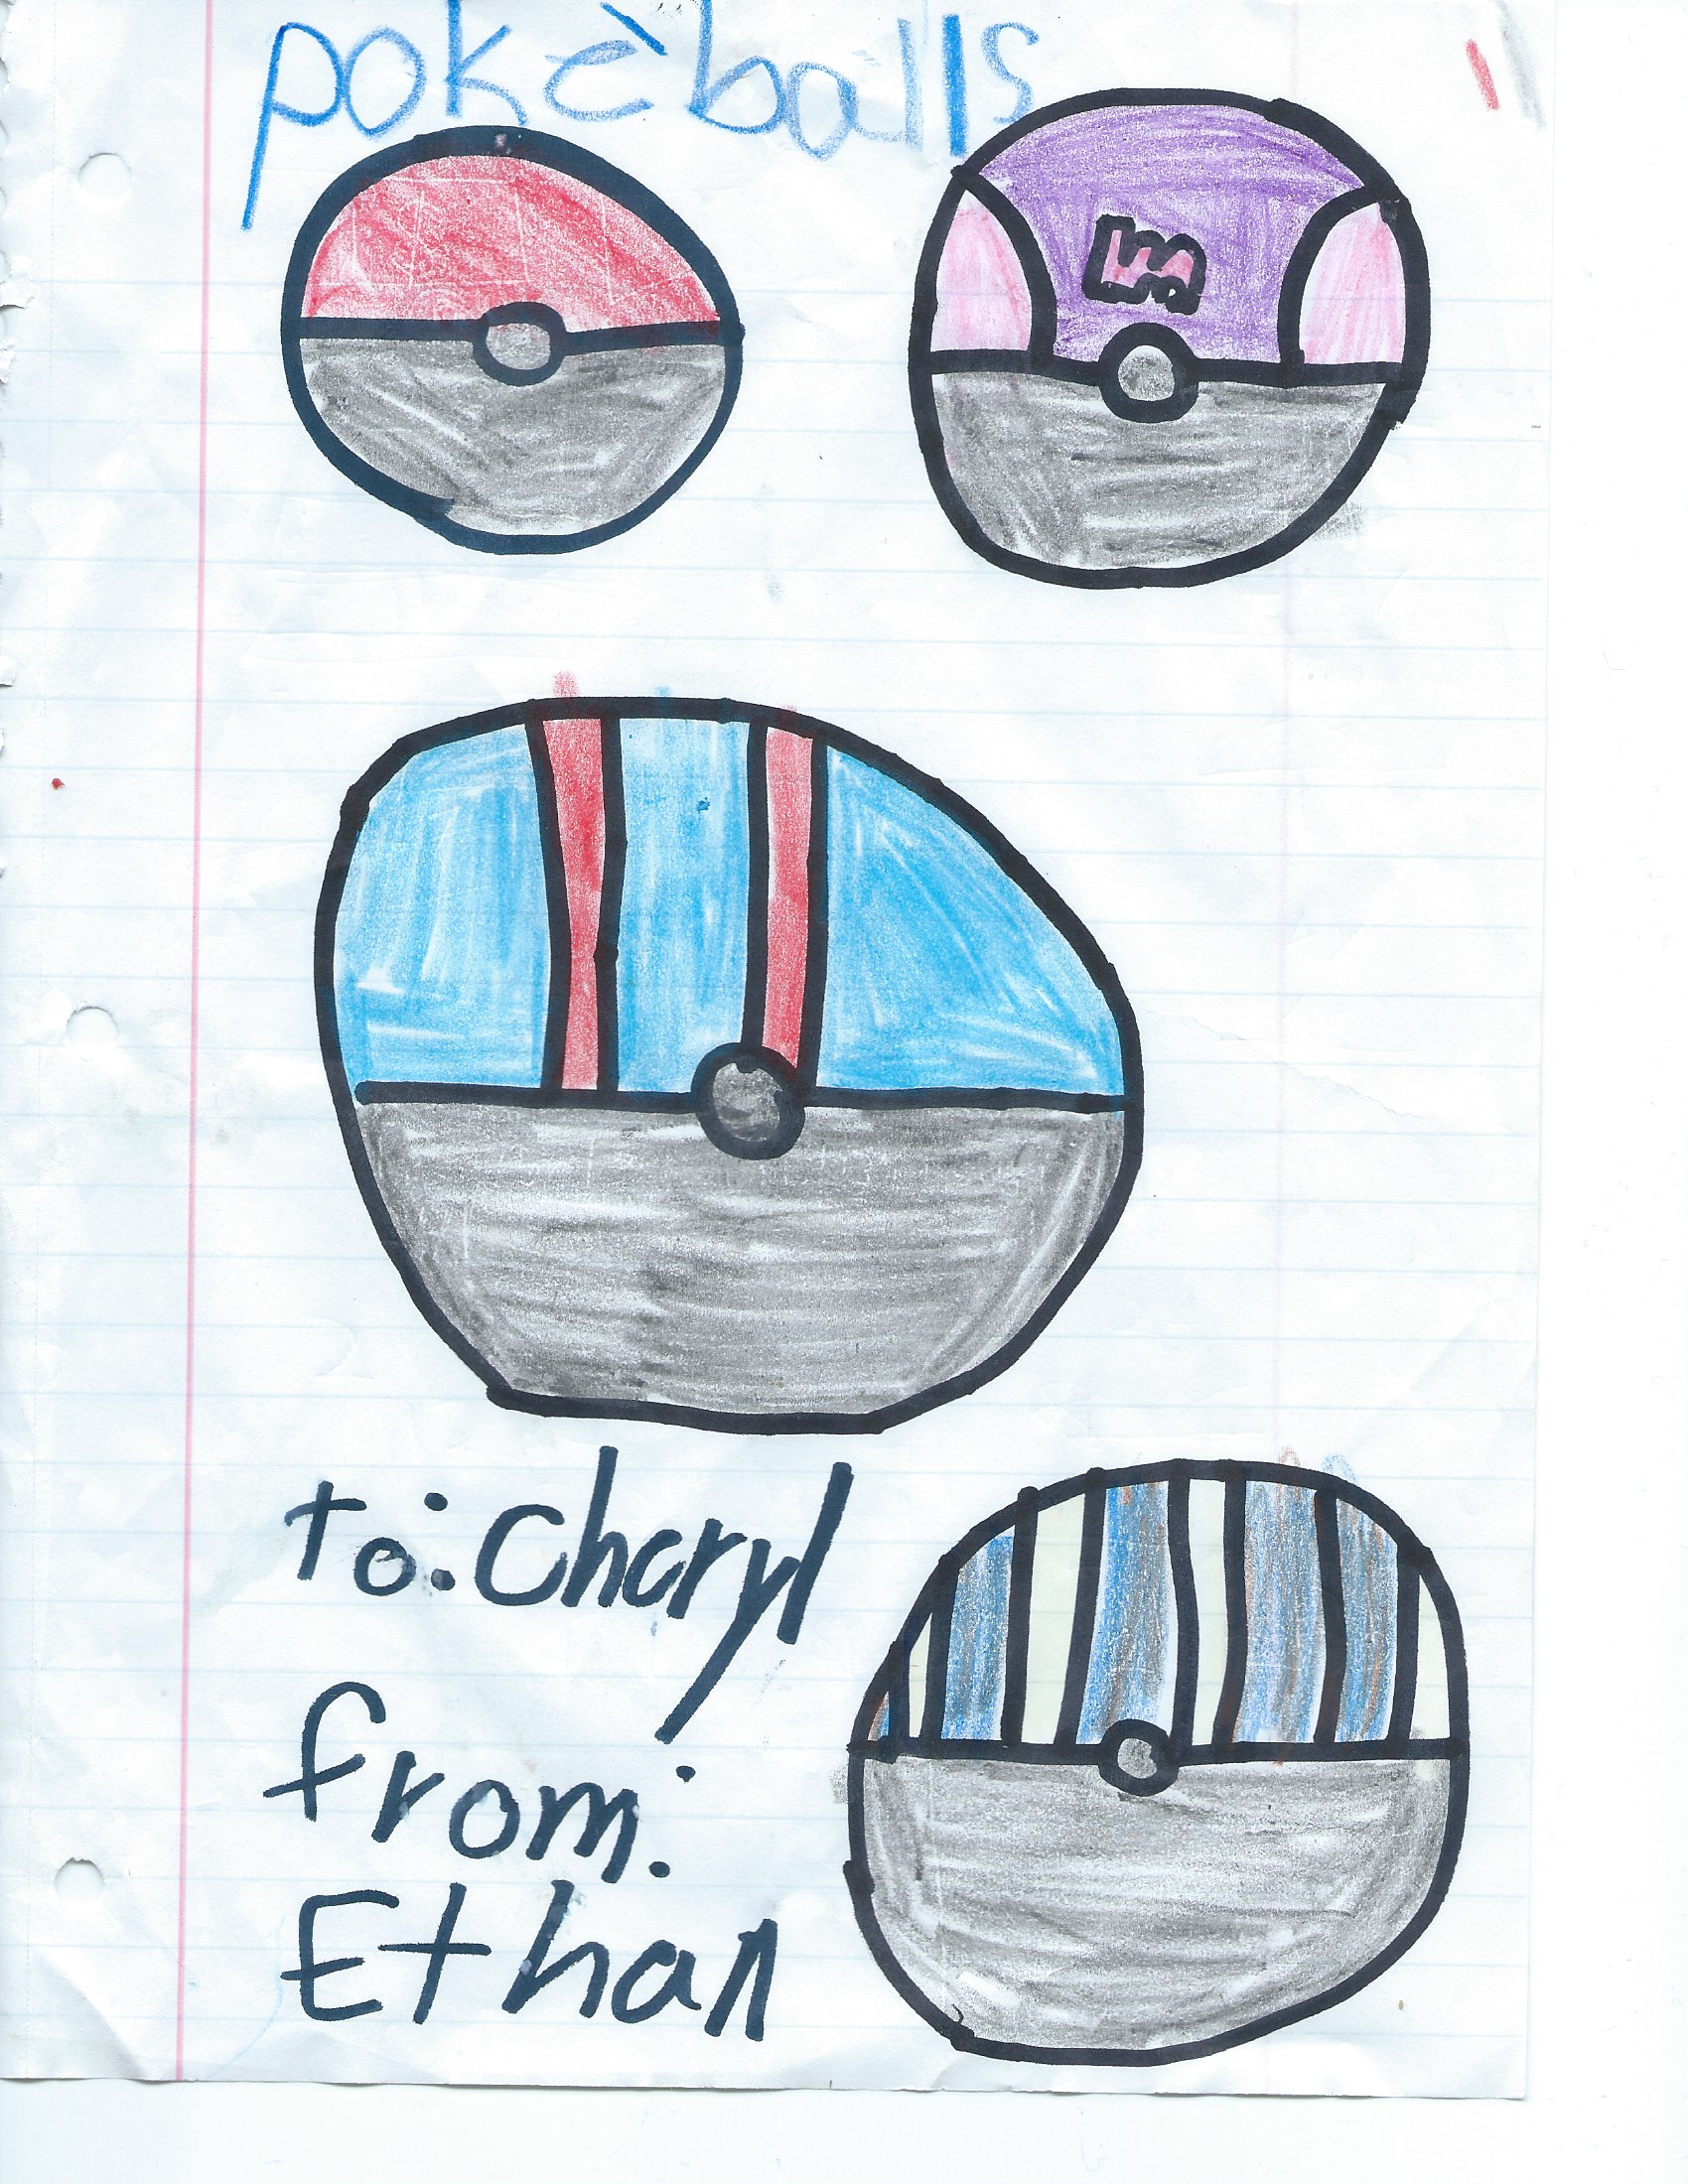 pokèballs
m
to: Cheryl
from:
Ethan